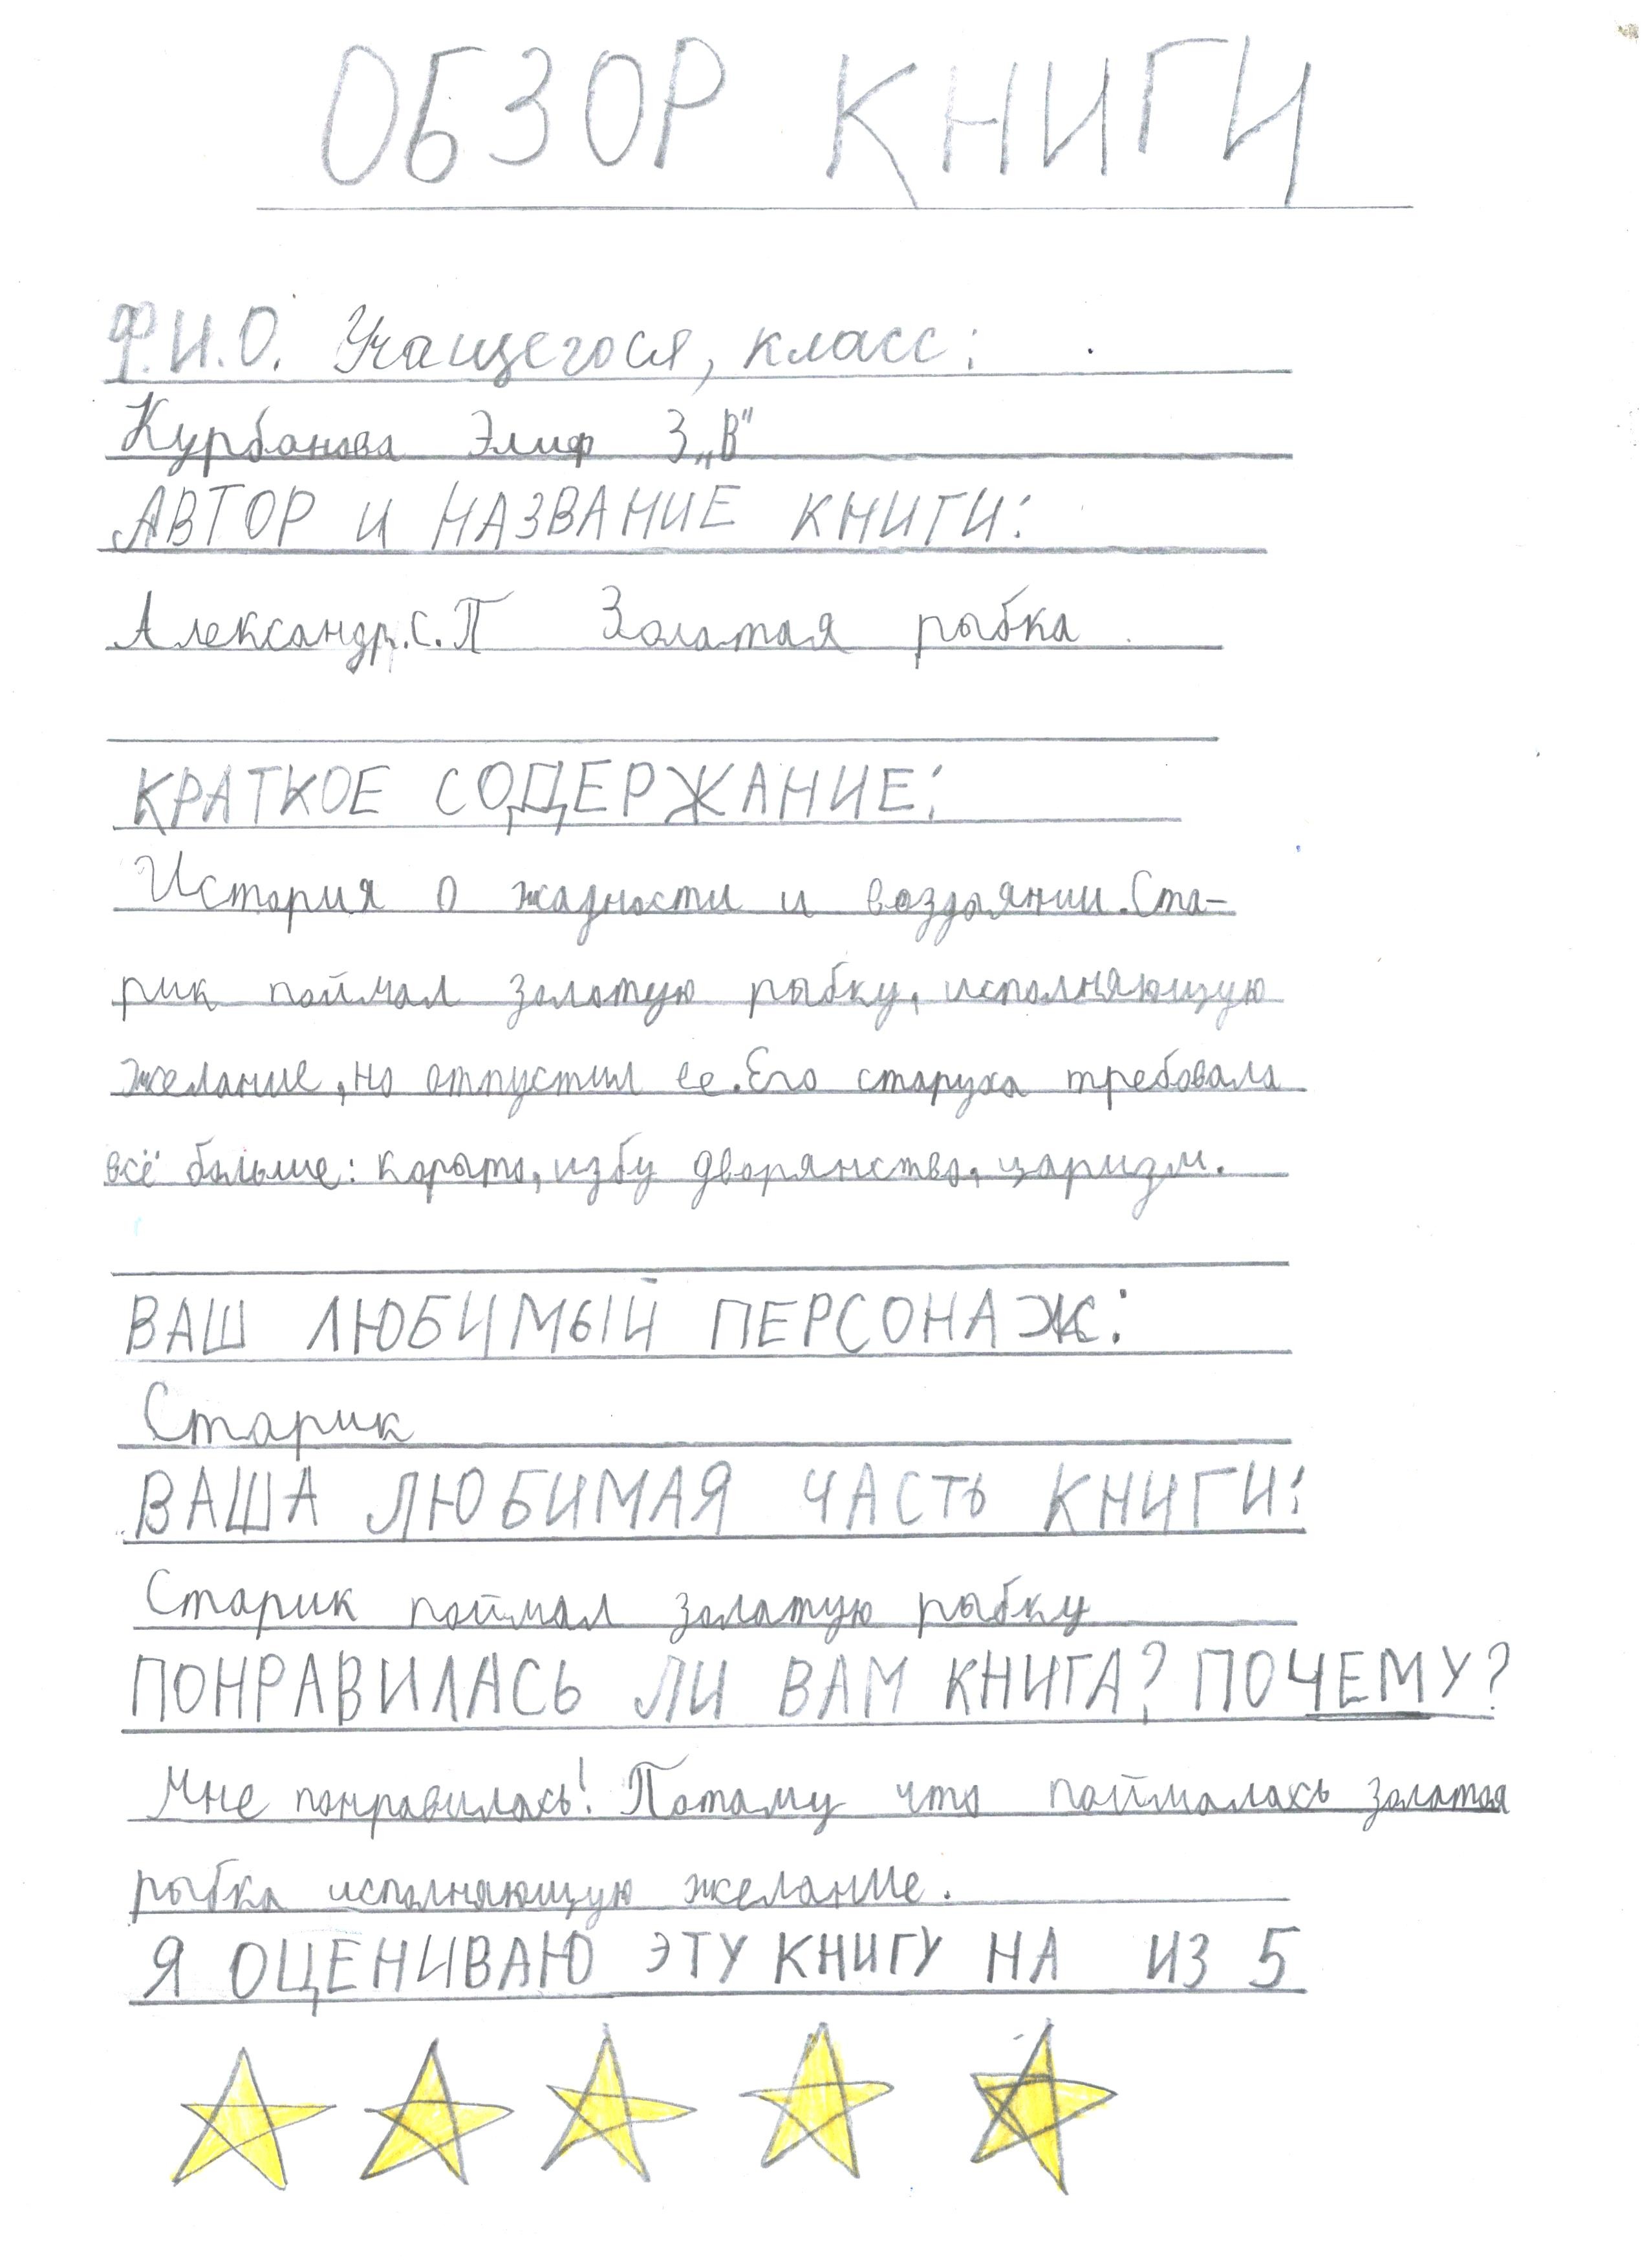 ОБЗОР КНИГИ
Ф.И.О. Учащегося, класс:
Курбанова Элиф 3„В"
АВТОР И НАЗВАНИЕ КНИГИ:
Александр.С.П Золотая рыбка
КРАТКОЕ СОДЕРЖАНИЕ:
История о жадности и воздаянии. Ста-
рик поймал золотую рыбку, исполняющую
желание, но отпустил ее. Его старуха требовала
всё больше: корыто, избу дворянство, царизм.
ВАШ ЛЮБИМЫЙ ПЕРСОНАЖ:
Старик
ВАША ЛЮБИМАЯ ЧАСТЬ КНИГИ:
Старик поймал золотую рыбку
ПОНРАВИЛАСЬ ЛИ ВАМ КНИГА? ПОЧЕМУ?
Мне понравилась! Потому что поймалась золотая
рыбка исполняющую желание.
Я ОЦЕНИВАЮ ЭТУ КНИГУ НА ИЗ 5